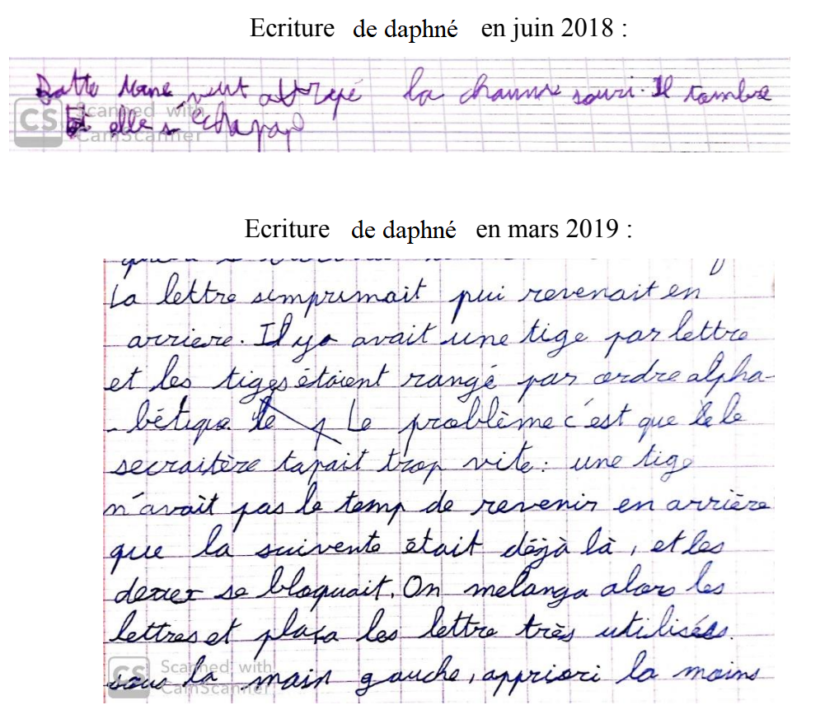 Ecriture de daphné en juin 2018 :
veut attrapé la chauve souri. Il tombe
Et elle s'échapap
CS Scanned with CamScanner
Ecriture de daphné en mars 2019 :
La lettre simprimait pui revenait en
arriere. Il ya avait une tige par lettre
et les tiges étaient rangé par ordre alpha-
-bétique. Le problème c'est que le
secraitère tapait trop vite : une tige
n'avait pas le temp de revenir en arrière
que la suivente était déjà là, et les
se bloquait. On melanga alors les
lettres et plaça les lettre très utilisées
sous la main gauche, appriori la moins
CS Scanned with CamScanner